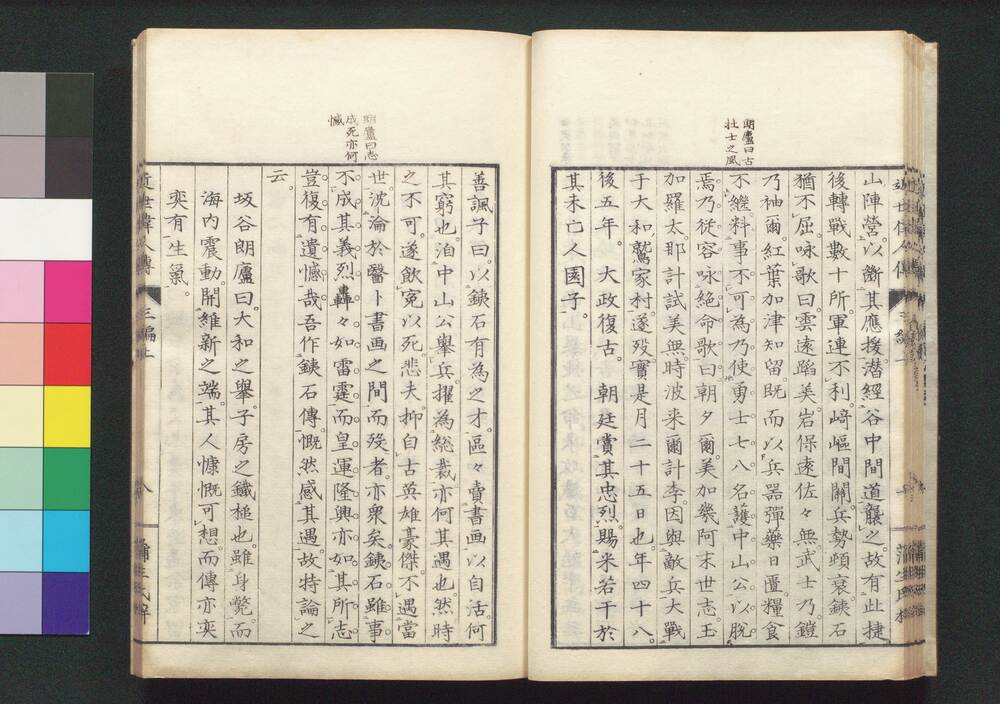 朗廬曰古
壮士之風
山陣營。以斷其應援。潜經谷中間道襲之。故有此捷
後轉戰數十所。軍連不利。﨑嶇間關。兵勢頗衰。鉄石
猶不屈。咏歌曰。雲遠蹈美岩保遠佐々無武士乃。鎧
乃袖爾紅葉加津知留。既而以兵噐彈藥日匱糧食
不繼。料事不可為。乃使勇士七八名護中山公以脱
焉。乃従容咏絶命歌曰。朝夕爾。美加幾阿末世志。玉
加羅太那計試美無時波来爾計李。因與敵兵大戰
于大和鷲家村。遂歿。實是月二十五日也。年四十八。
後五年。大政復古。朝廷賞其忠烈。賜米若干於
其未亡人園子。
朗廬曰志
成死亦何
憾
善諷子曰。以鉄石有為之才。區々賣書画以自活。何
其窮也。洎中山公擧兵。擢為総裁。亦何其遇也。然時
之不可。遂飲寃以死。悲夫。抑自古英雄豪傑。不遇當
世。沈淪於醫卜書画之間而歿者。亦衆矣。鉄石雖事
不成。其義烈轟々如雷霆。而皇運隆興。亦如其所志
豈復有遺憾哉。吾作鉄石傳。慨然感其遇。故特論之
云。
坂谷朗廬曰。大和之擧。子房之鐵槌也。雖身斃。而
海内震動。開維新之端。其人慷慨可想。而傳亦奕
奕有生氣。
近世偉人傳
三編上
八
蒲生氏梓